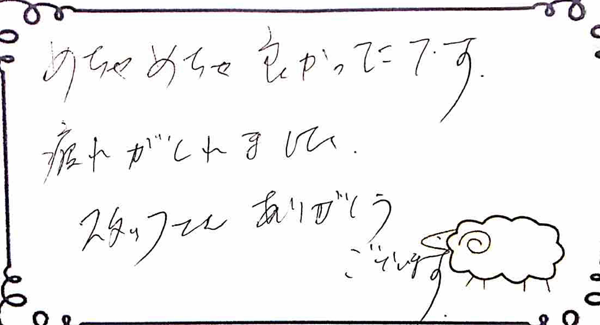 めちゃめちゃ良かったです.
疲れがとれました.
スタッフさん ありがとう
ございます.